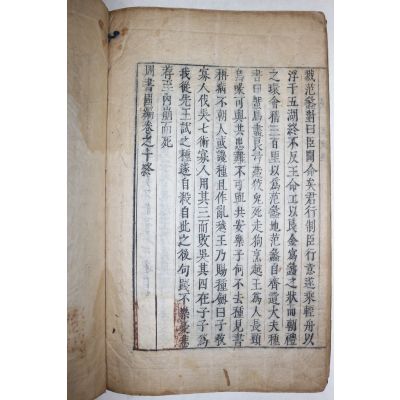 戮范蠡對曰臣聞命矣君行制臣行意遂乘輕舟以
浮于五湖終不反王命工以良金寫蠡之狀而朝禮
之環會稽三百里以爲范蠡地范蠡自齊遺大夫種
書曰蜚鳥盡良弓藏狡兔死走狗烹越王爲人長頸
鳥喙可與共患難不可與共安樂子何不去種見書
稱病不朝人或讒種且作亂越王乃賜種劍曰子敎
寡人伐吳七術寡人用其三而敗吳其四在子子爲
我從先王試之種遂自殺自此之後句踐不樂憂
而死
書國編卷之十終